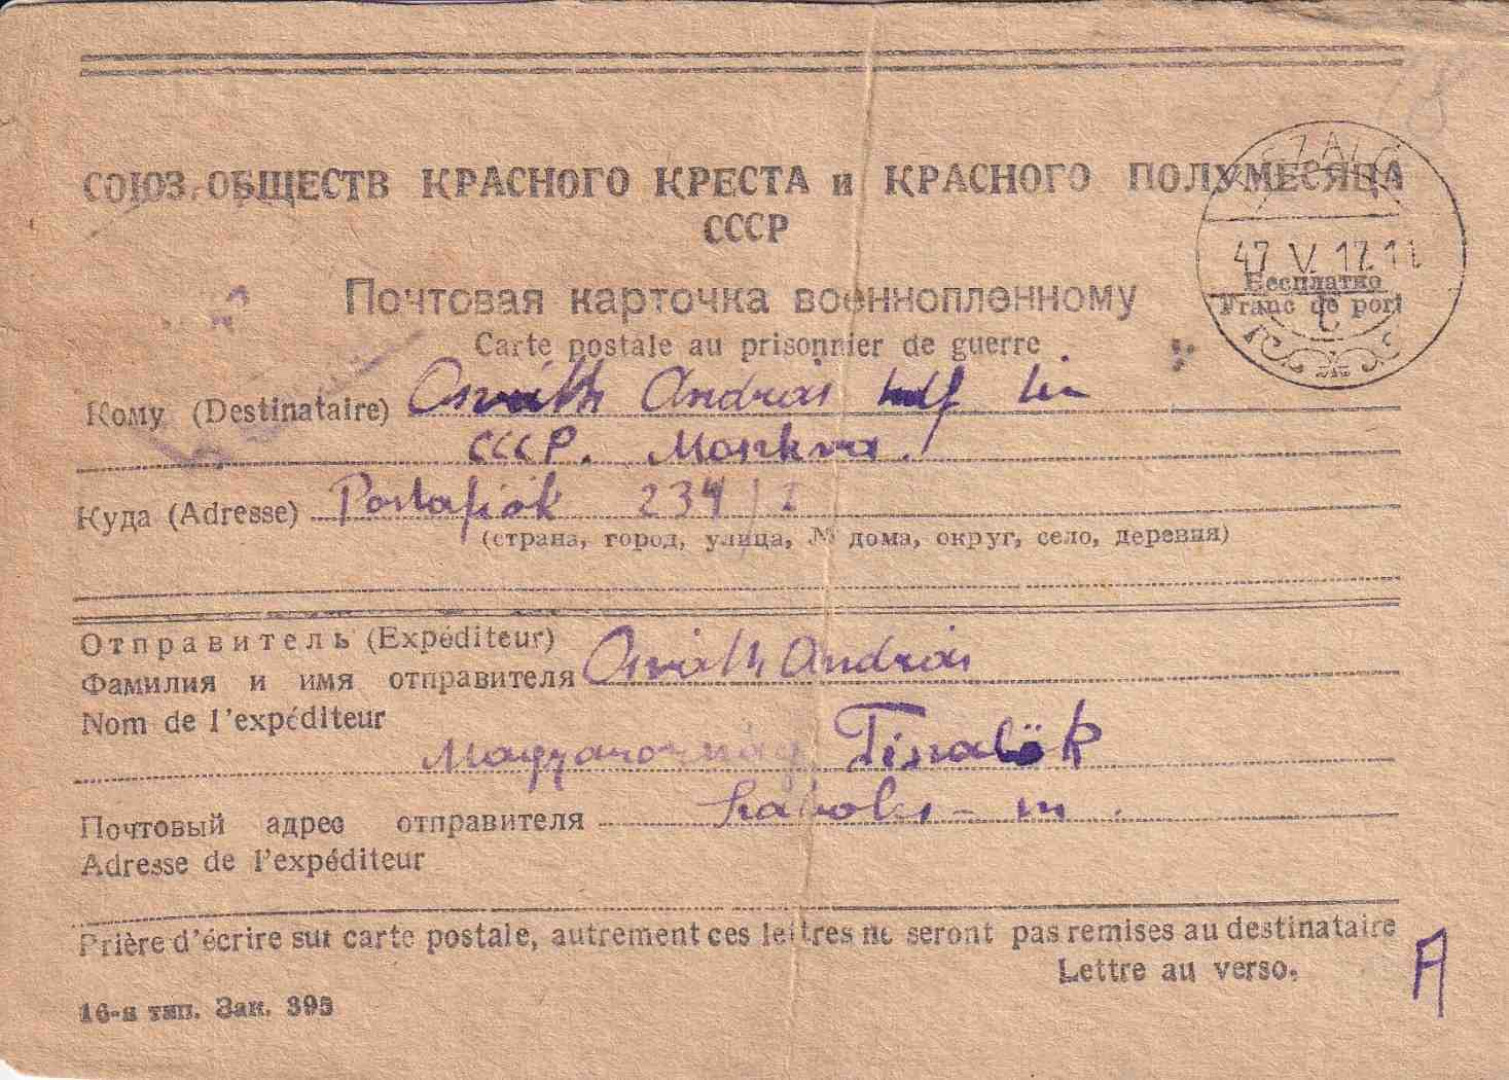 СОЮЗ ОБЩЕСТВ КРАСНОГО КРЕСТА и КРАСНОГО ПОЛУМЕСЯЦА
СССР
47 V. 17.11
Бесплатно
Franc de port
Почтовая карточка военнопленному
Carte postale au prisonnier de guerre
Кому (Destinataire) Osváth András hdf
СССР. Moszkva.
Куда (Adresse) Postafiók 234/I
(страна, город, улица, № дома, округ, село, деревня)
Отправитель (Expéditeur)
Фамилия и имя отправителя Osváth András
Nom de l'expéditeur
Magyarország Tiszalök
Почтовый адрес отправителя Szabolcs - m.
Adresse de l'expéditeur
Prière d'écrire sur carte postale, autrement ces lettres ne seront pas remises au destinataire
Lettre au verso.
A
16-я тип. Зак. 393